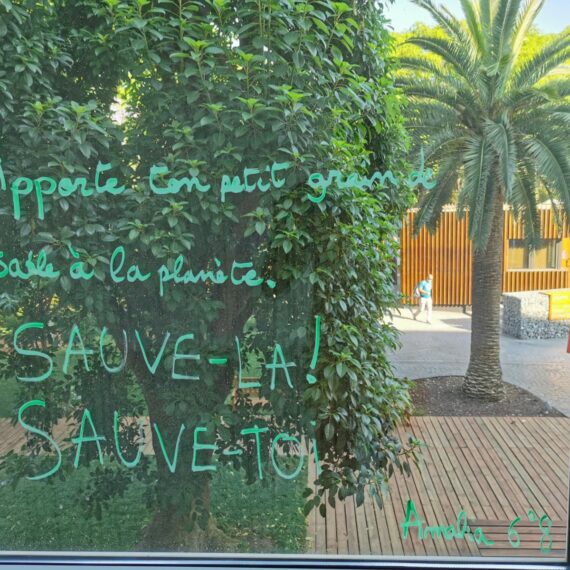 Apporte ton petit grain de
sable à la planète.
SAUVE-LA!
SAUVE-TOI
Amalia 6°8